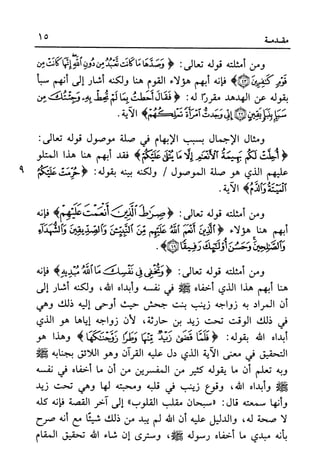 مقدمـة ١٥
ومن أمثلته قوله تعالى: ﴿ وَصَدَّهَا مَا كَانَت تَّعْبُدُ مِن دُونِ اللَّهِ إِنَّهَا كَانَتْ مِن
قَوْمٍ كَافِرِينَ ﴿٤٣﴾﴾ فإنه أبهم هؤلاء القوم هنا ولكنه أشار إلى أنهم سبأ
بقوله عن الهدهد مقررًا له: ﴿ فَقَالَ أَحَطتُ بِمَا لَمْ تُحِطْ بِهِ وَجِئْتُكَ مِن
سَبَإٍ بِنَبَإٍ يَقِينٍ ﴿٢٢﴾ إِنِّي وَجَدتُّ امْرَأَةً تَمْلِكُهُمْ ﴾ الآية.
ومثال الإجمال بسبب الإبهام في صلة موصول قوله تعالى:
﴿ أُحِلَّتْ لَكُم بَهِيمَةُ الْأَنْعَامِ إِلَّا مَا يُتْلَى عَلَيْكُمْ ﴾ فقد أبهم هنا هذا المتلو
عليهم الذي هو صلة الموصول / ولكنه بينه بقوله: ﴿ حُرِّمَتْ عَلَيْكُمُ ٩
الْمَيْتَةُ وَالدَّمُ ﴾ الآية.
ومن أمثلته قوله تعالى: ﴿ صِرَاطَ الَّذِينَ أَنْعَمْتَ عَلَيْهِمْ ﴾ فإنه
أبهم هنا هؤلاء ﴿ الَّذِينَ أَنْعَمَ اللَّهُ عَلَيْهِم مِّنَ النَّبِيِّينَ وَالصِّدِّيقِينَ وَالشُّهَدَاءِ
وَالصَّالِحِينَ وَحَسُنَ أُولَئِكَ رَفِيقًا ﴿٦٩﴾﴾.
ومن أمثلته قوله تعالى: ﴿ وَتُخْفِي فِي نَفْسِكَ مَا اللَّهُ مُبْدِيهِ ﴾ فإنه
هنا أبهم هذا الذي أخفاه ﷺ في نفسه وأبداه الله، ولكنه أشار إلى
أن المراد به زواجه زينب بنت جحش حيث أوحى إليه ذلك وهي
في ذلك الوقت تحت زيد بن حارثة، لأن زواجه إياها هو الذي
أبداه الله بقوله: ﴿ فَلَمَّا قَضَى زَيْدٌ مِّنْهَا وَطَرًا زَوَّجْنَاكَهَا ﴾ وهذا هو
التحقيق في معنى الآية الذي دل عليه القرآن وهو اللائق بجنابه ﷺ
وبه تعلم أن ما يقوله كثير من المفسرين من أن ما أخفاه في نفسه
ﷺ وأبداه الله، وقوع زينب في قلبه ومحبته لها وهي تحت زيد
وأنها سمعته قال: «سبحان مقلب القلوب» إلى آخر القصة فإنه كله
لا صحة له، والدليل عليه أن الله لم يبد من ذلك شيئًا مع أنه صرح
بأنه مبدي ما أخفاه رسوله ﷺ، وسترى إن شاء الله تحقيق المقام